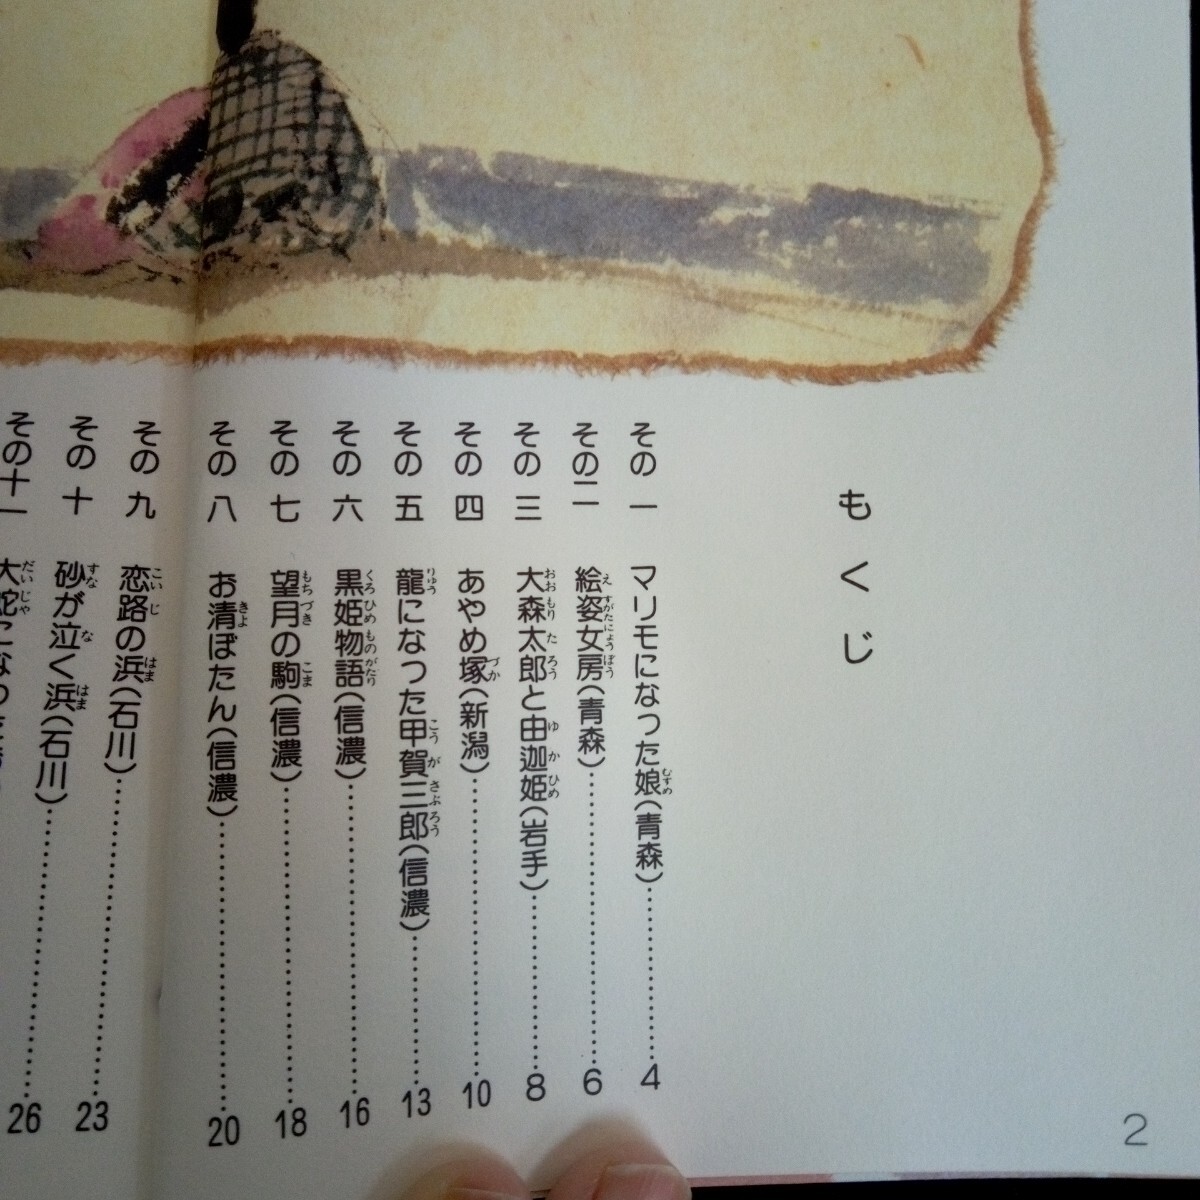 もくじ
その一 マリモになった娘(青森)…………4
その二 絵姿女房(青森)…………6
その三 大森太郎と由迦姫(岩手)…………8
その四 あやめ塚(新潟)…………10
その五 龍になった甲賀三郎(信濃)…………13
その六 黒姫物語(信濃)…………16
その七 望月の駒(信濃)…………18
その八 お清ぼたん(信濃)…………20
その九 恋路の浜(石川)…………23
その十 砂が泣く浜(石川)…………26
その十一 大蛇になった
2